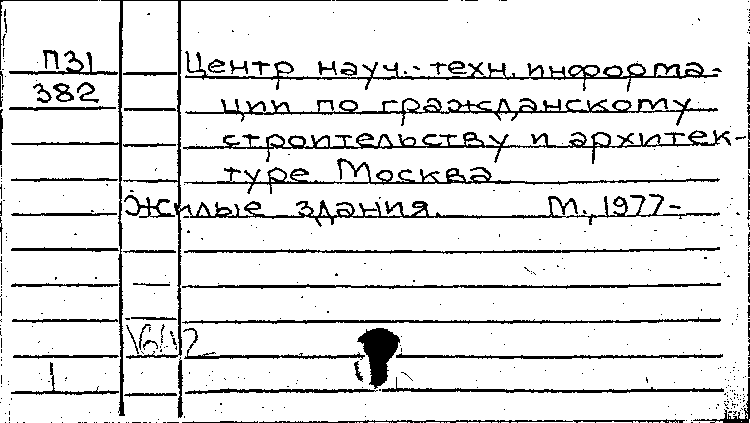 П31 Центр науч.-техн. информа-
382 ции по гражданскому
строительству и архитек-
туре. Москва
Жилые здания. М., 1977-